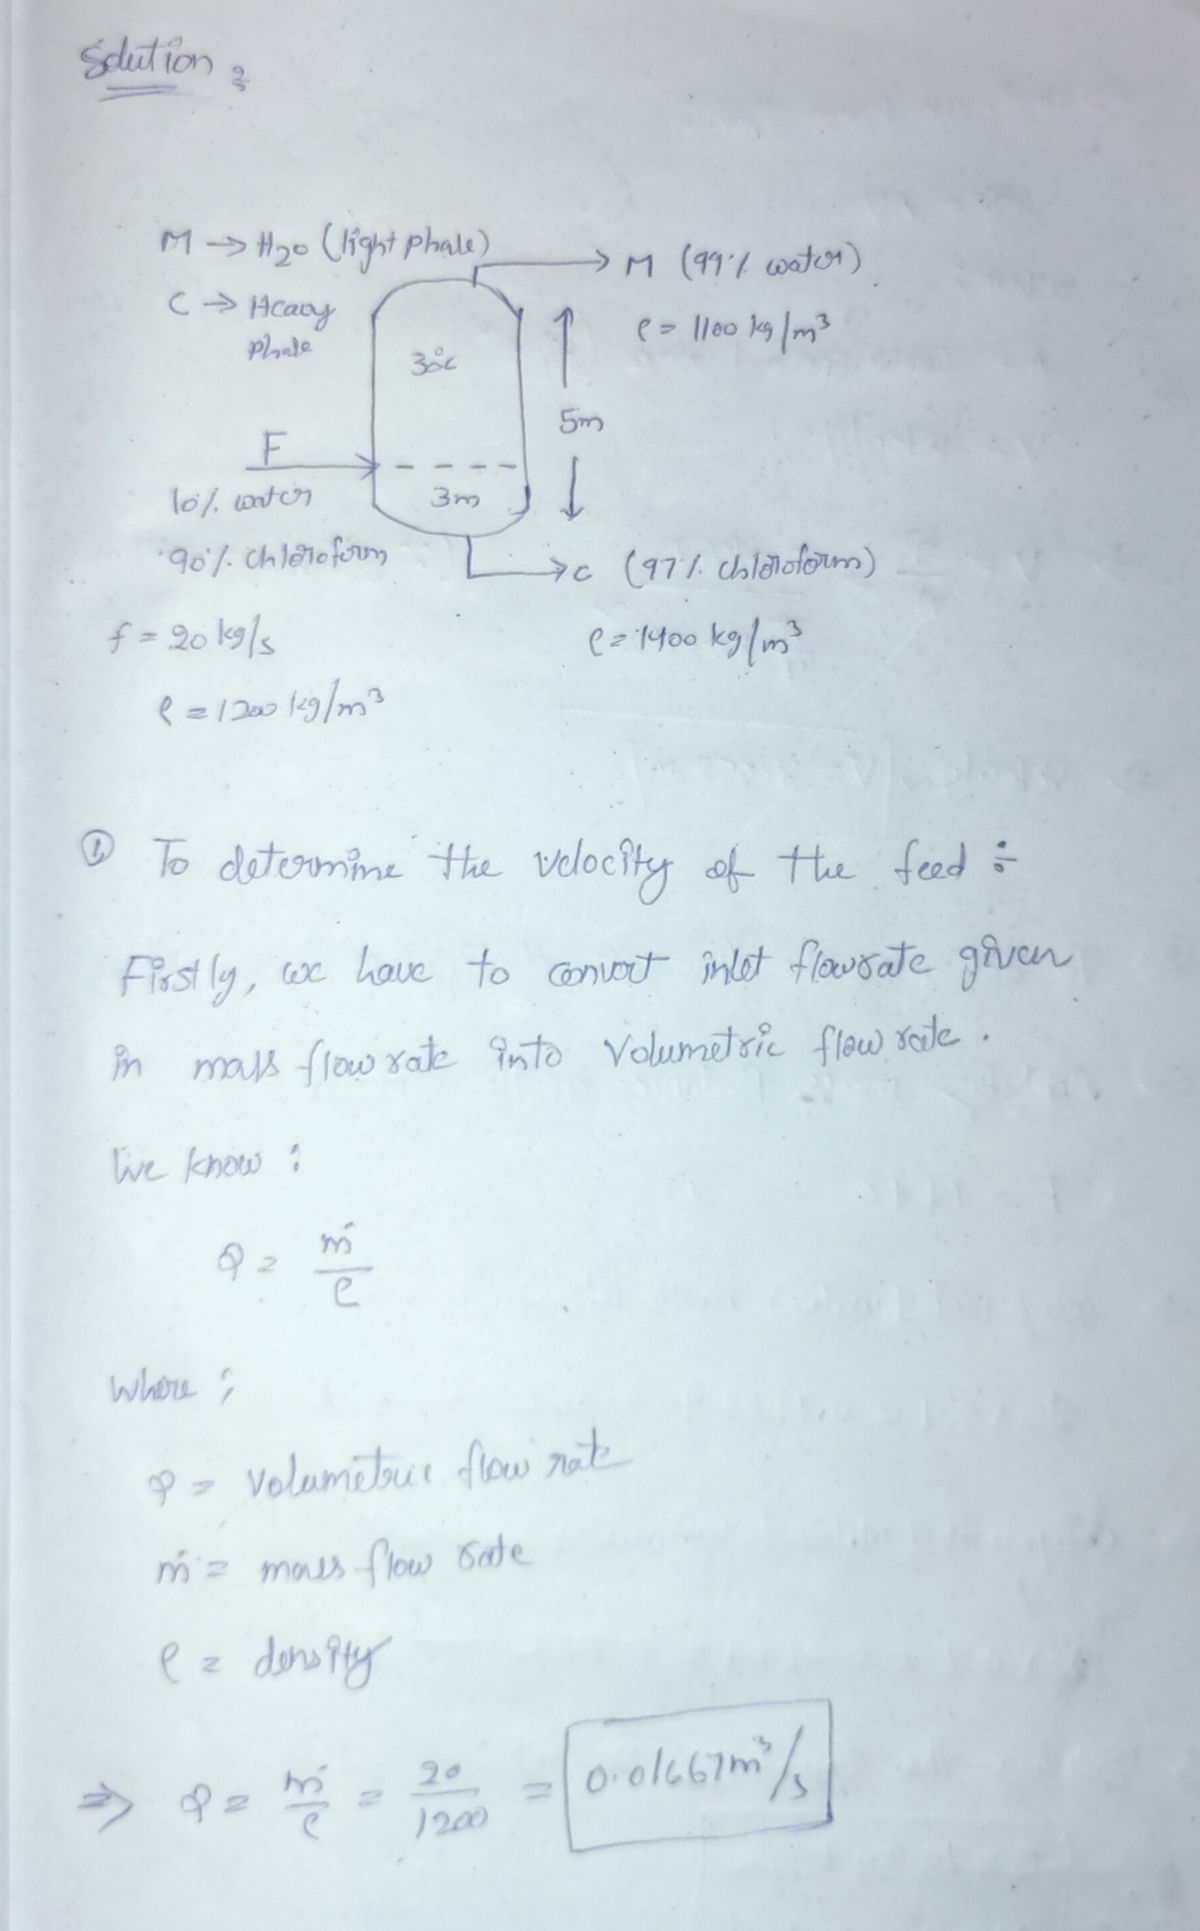 Solution :
M → H2O (light phase)
→ M (99% water)
C → Heavy
phase
ρ = 1100 kg/m³
30°C
5m
F
3m
10% water
90% chloroform
→ C (97% chloroform)
f = 20 kg/s
ρ = 1400 kg/m³
ρ = 1200 kg/m³
① To determine the velocity of the feed ÷
Firstly, we have to convert inlet flowrate given
in mass flow rate into Volumetric flow rate.
We know :
Q = ṁ/ρ
Where ;
Q = Volumetric flow rate
ṁ = mass flow rate
ρ = density
⇒ Q = ṁ/ρ = 20/1200 = 0.01667m³/s